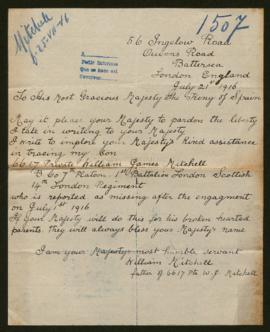 Mitchell
1507
56 Ingelow Road
Queens Road
Battersea
London England
July 21st 1916
To His Most Gracious Majesty The King of Spain
May it please your Majesty to pardon the liberty
I take in writing to your Majesty
I write to implore your Majesty's kind assistance
in tracing my Son
6617 Private William James Mitchell
B Co 7th Platoon 1st Battalion London Scottish
14th London Regiment
who is reported as missing after the engagment
on July 1st 1916
If your Majesty will do this for his broken hearted
parents, they will always bless your Majestys name
I am your Majestys most humble servant
William Mitchell
father of 6617 Pte W. J. Mitchell